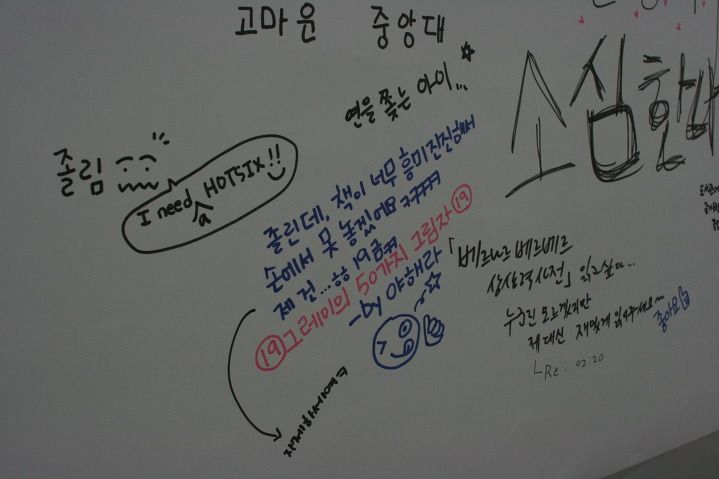 고마운 중앙대
연을 쫓는 아이...
소심한
졸림
I need a HOT6IX!!
졸린데, 책이 너무 흥미진진해서
손에서 못 놓겠어요 ㅋㅋㅋㅋ
제 건...ㅎㅎ 19금ㅋㅋ
⑲그레이의 50가지 그림자⑲
-by 야해라
자제하세여ㅋ
「베르나르 베르베르
상상력사전」 읽고싶다...
누군진 모르겠지만
제 대신 재밌게 읽어주세요~
좋아요
ㄴRe: 02:20